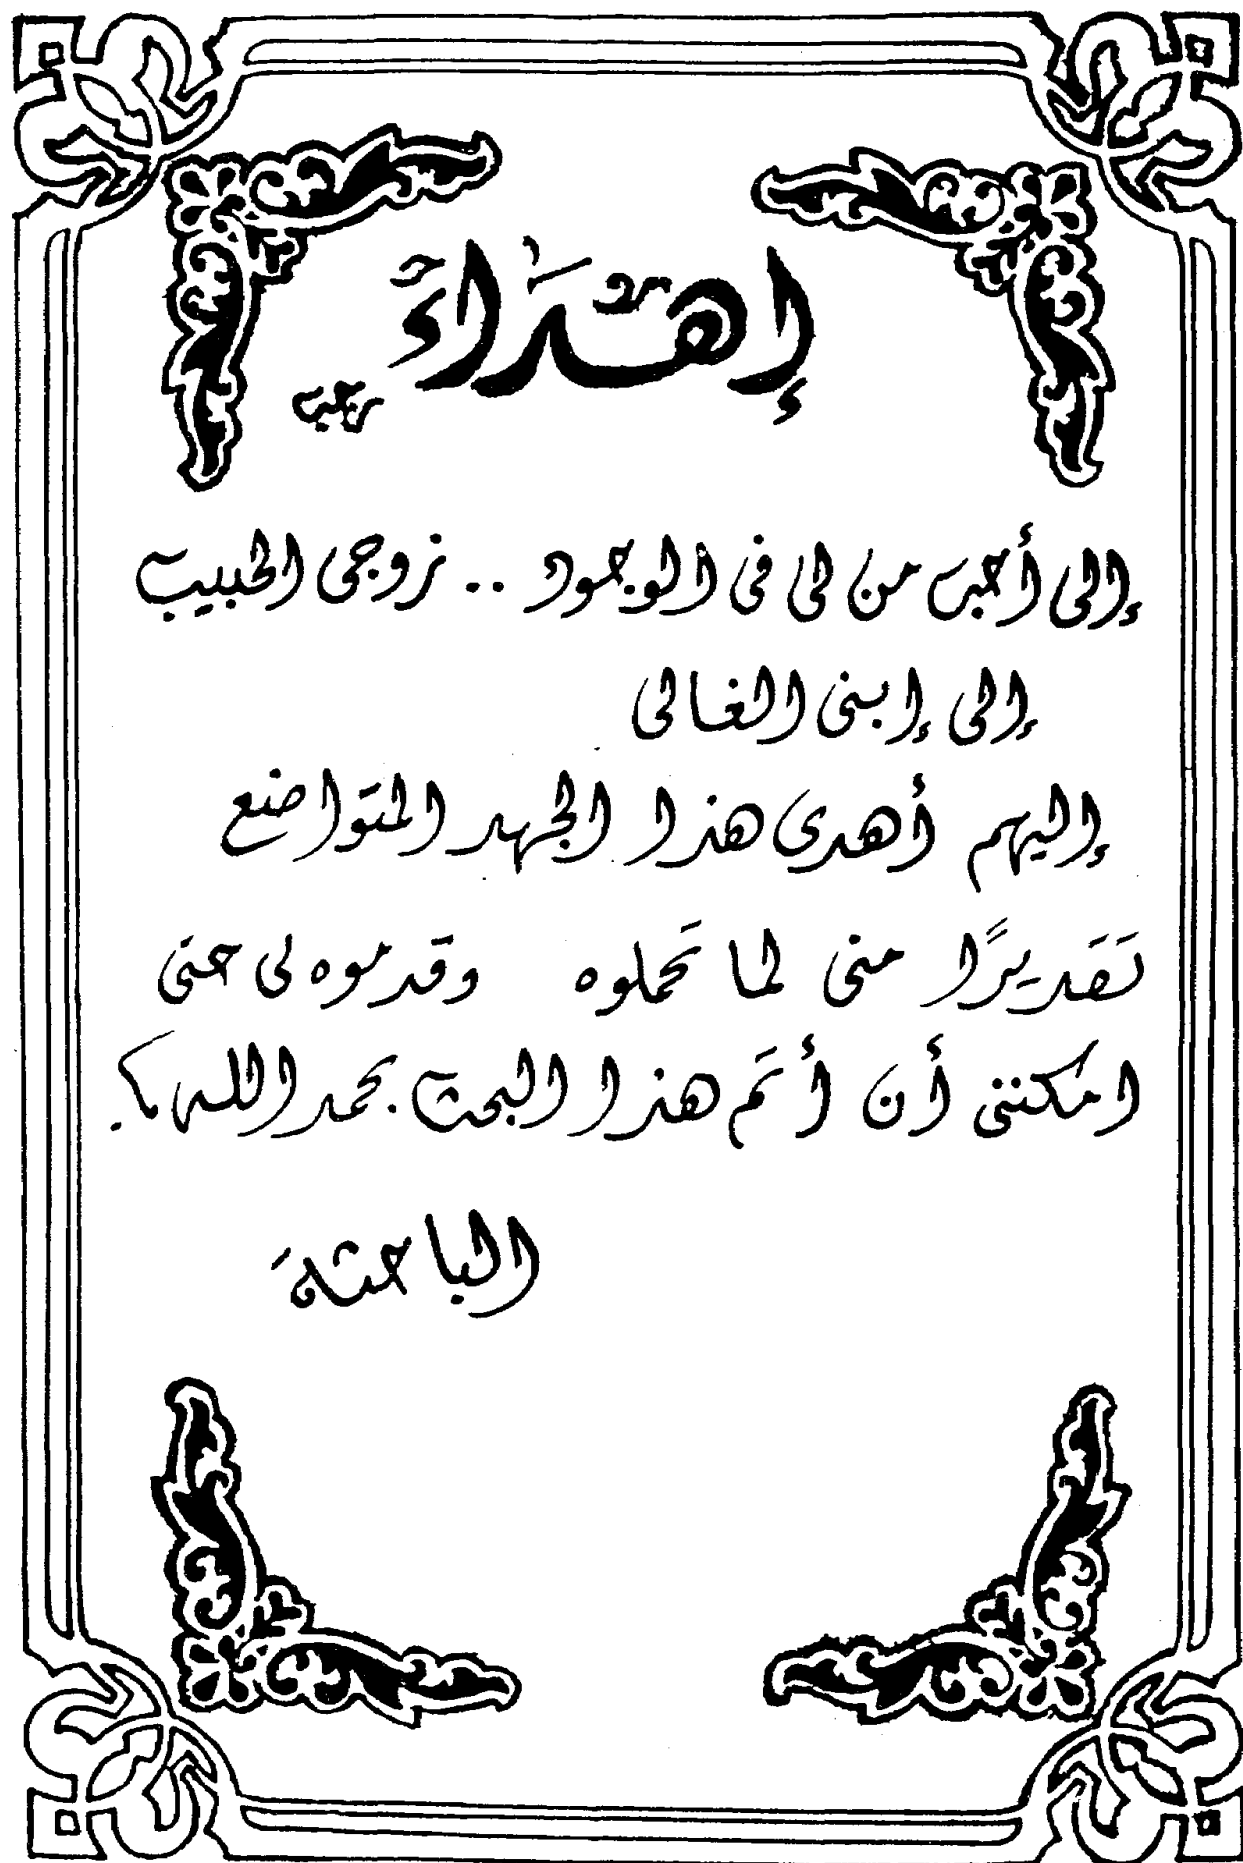 إهْدَاءً
رجب
إلى أحب من لى فى الوجود .. زوجى الحبيب
إلى إبنى الغالى
إليهم أهدى هذا الجهد المتواضع
تَقديرًا منى لما تَحملوه وقدموه لى حتى
امكننى أن أتم هذا البحث بحمد الله ،
الباحثة